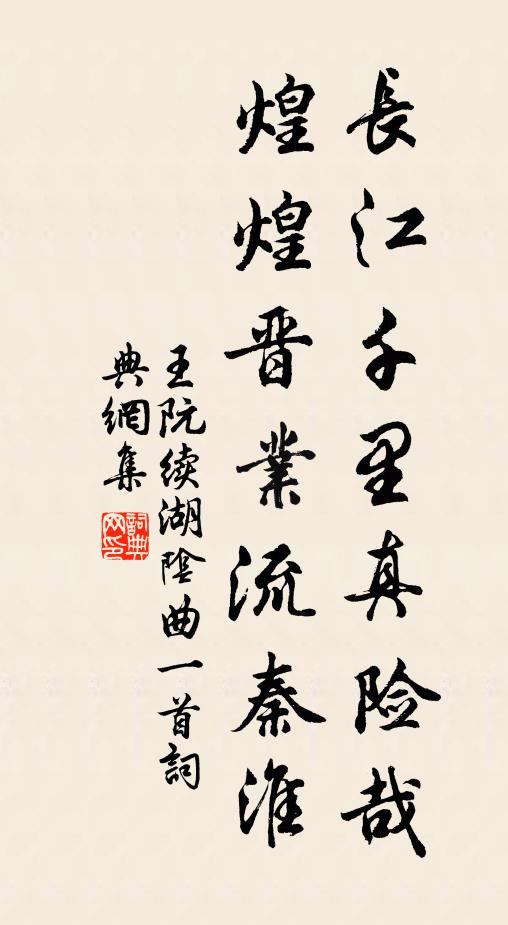 長江千里真险哉
煌煌晋業流秦淮
王阮续湖陰曲一首詞
典網集
詞典网印